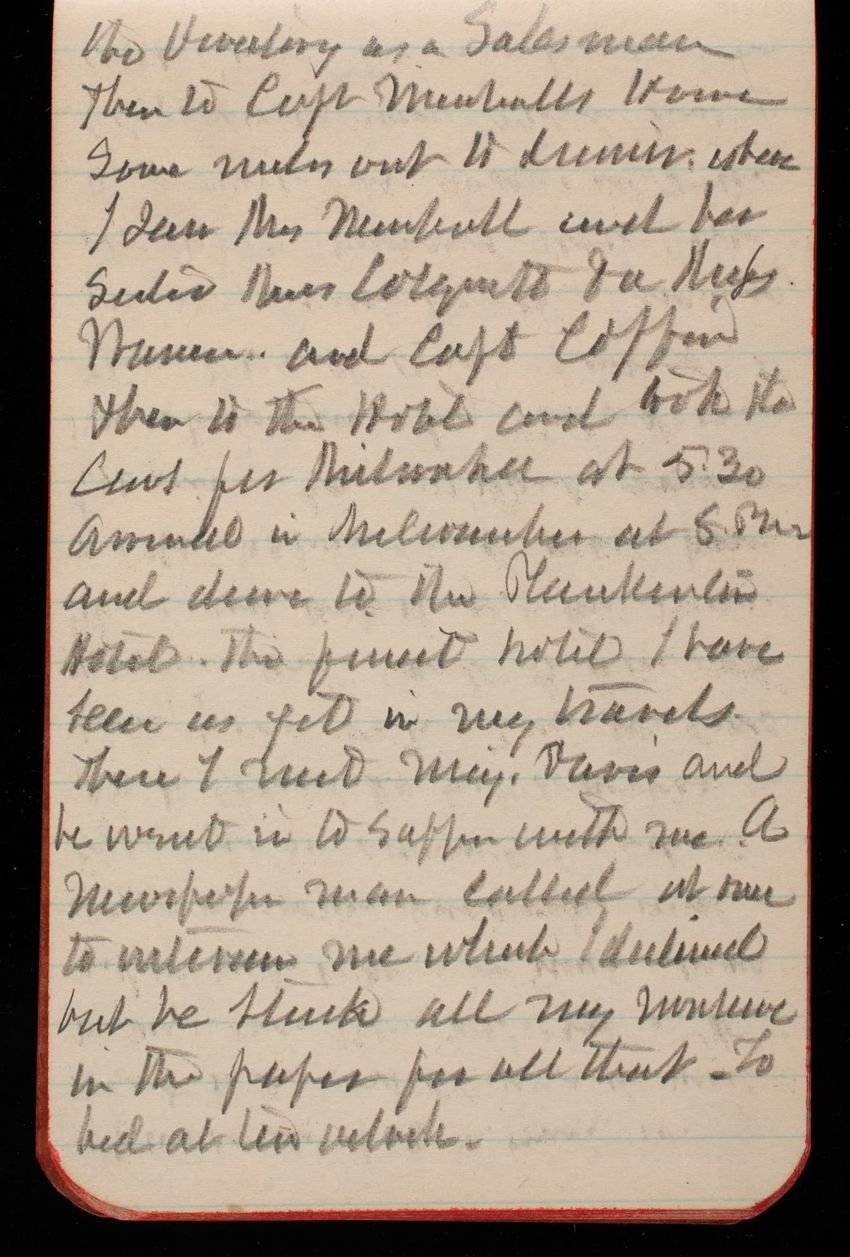 the as a Salesman
then to Capt Home
Some miles out to dinner. where
I saw Mrs and her
Sister
and Capt Coffin
then to the Hotel and took the
Cars for Milwaukee at 5 30
Arrived in Milwaukee at 8 PM
and drove to the Plankenton
Hotel. The finest hotel I have
seen as yet in my travels
there I met Maj. Davis and
he went in to supper with me. A
Newspaper man called at once
to interview me which I declined
but he stuck all my
in the paper for all that - To
bed at ten oclock -